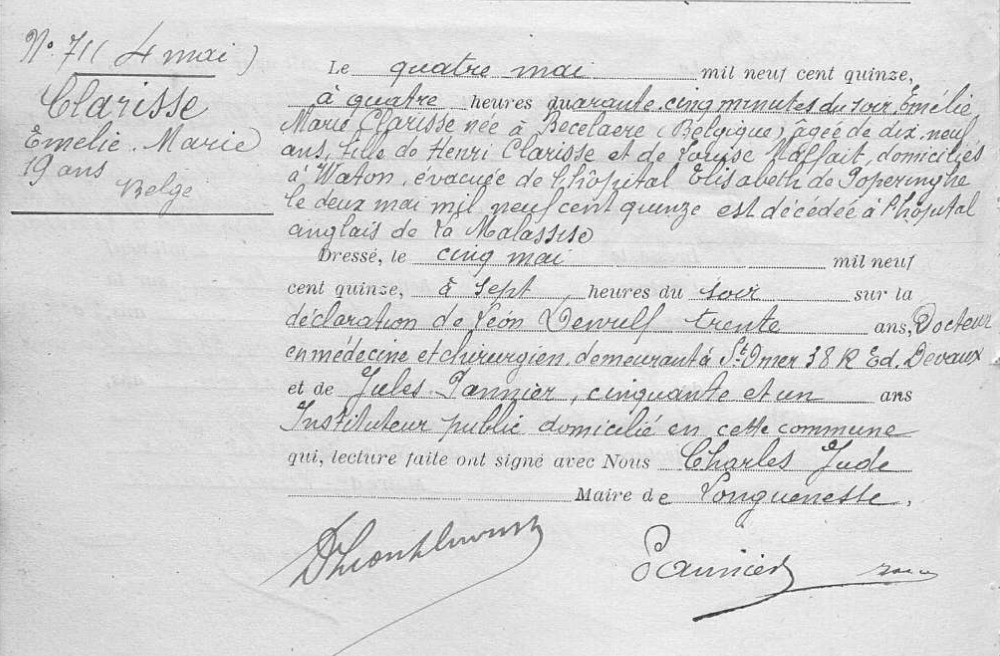 N° 71 (4 mai)
Clarisse
Emelie. Marie
19 ans
Belge
Le quatre mai mil neuf cent quinze,
à quatre heures quarante-cinq minutes du soir, Emélie
Marie Clarisse née à Becelaere (Belgique), âgée de dix-neuf
ans, fille de Henri Clarisse et de Louise Maffait, domiciliés
à Waton, évacuée de l'hôpital Elisabeth de Poperinghe
le deux mai mil neuf cent quinze est décédée à l'hôpital
anglais de la Malassise
Dressé, le cinq mai mil neuf
cent quinze, à sept heures du soir sur la
déclaration de Léon Dewulf trente ans, Docteur
en médecine et chirurgien, demeurant à St Omer 38 R Ed. Devaux
et de Jules Pannier, cinquante et un ans
Instituteur public domicilié en cette commune
qui, lecture faite ont signé avec Nous Charles Jude
Maire de Longuenesse.
Pannier